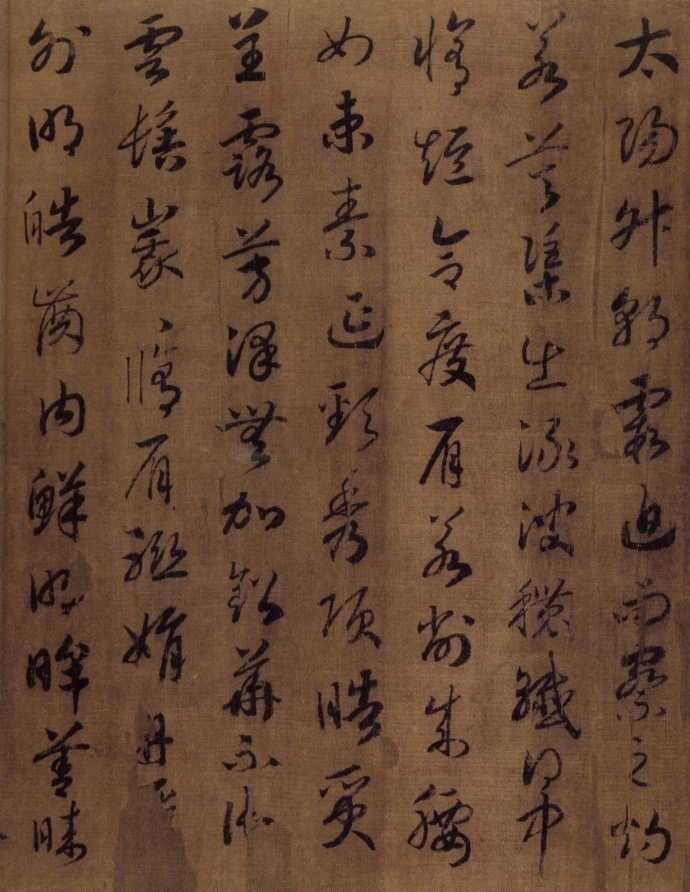 太陽升朝霞迫而察之灼
若芙蕖出淥波穠纖得中
脩短合度肩若削成腰
如束素延頸秀項皓質
呈露芳澤無加鉛華不御
雲髻峩〻脩眉聯娟丹唇
外朗皓齒内鮮明眸善睞